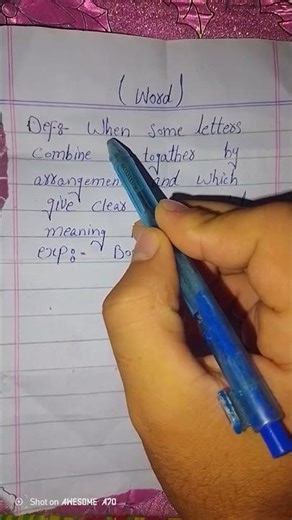 (Word)
Def:- When some letters
combine togather by
arrangement and which
give clear
meaning
exp:-
Shot on AWESOME A70